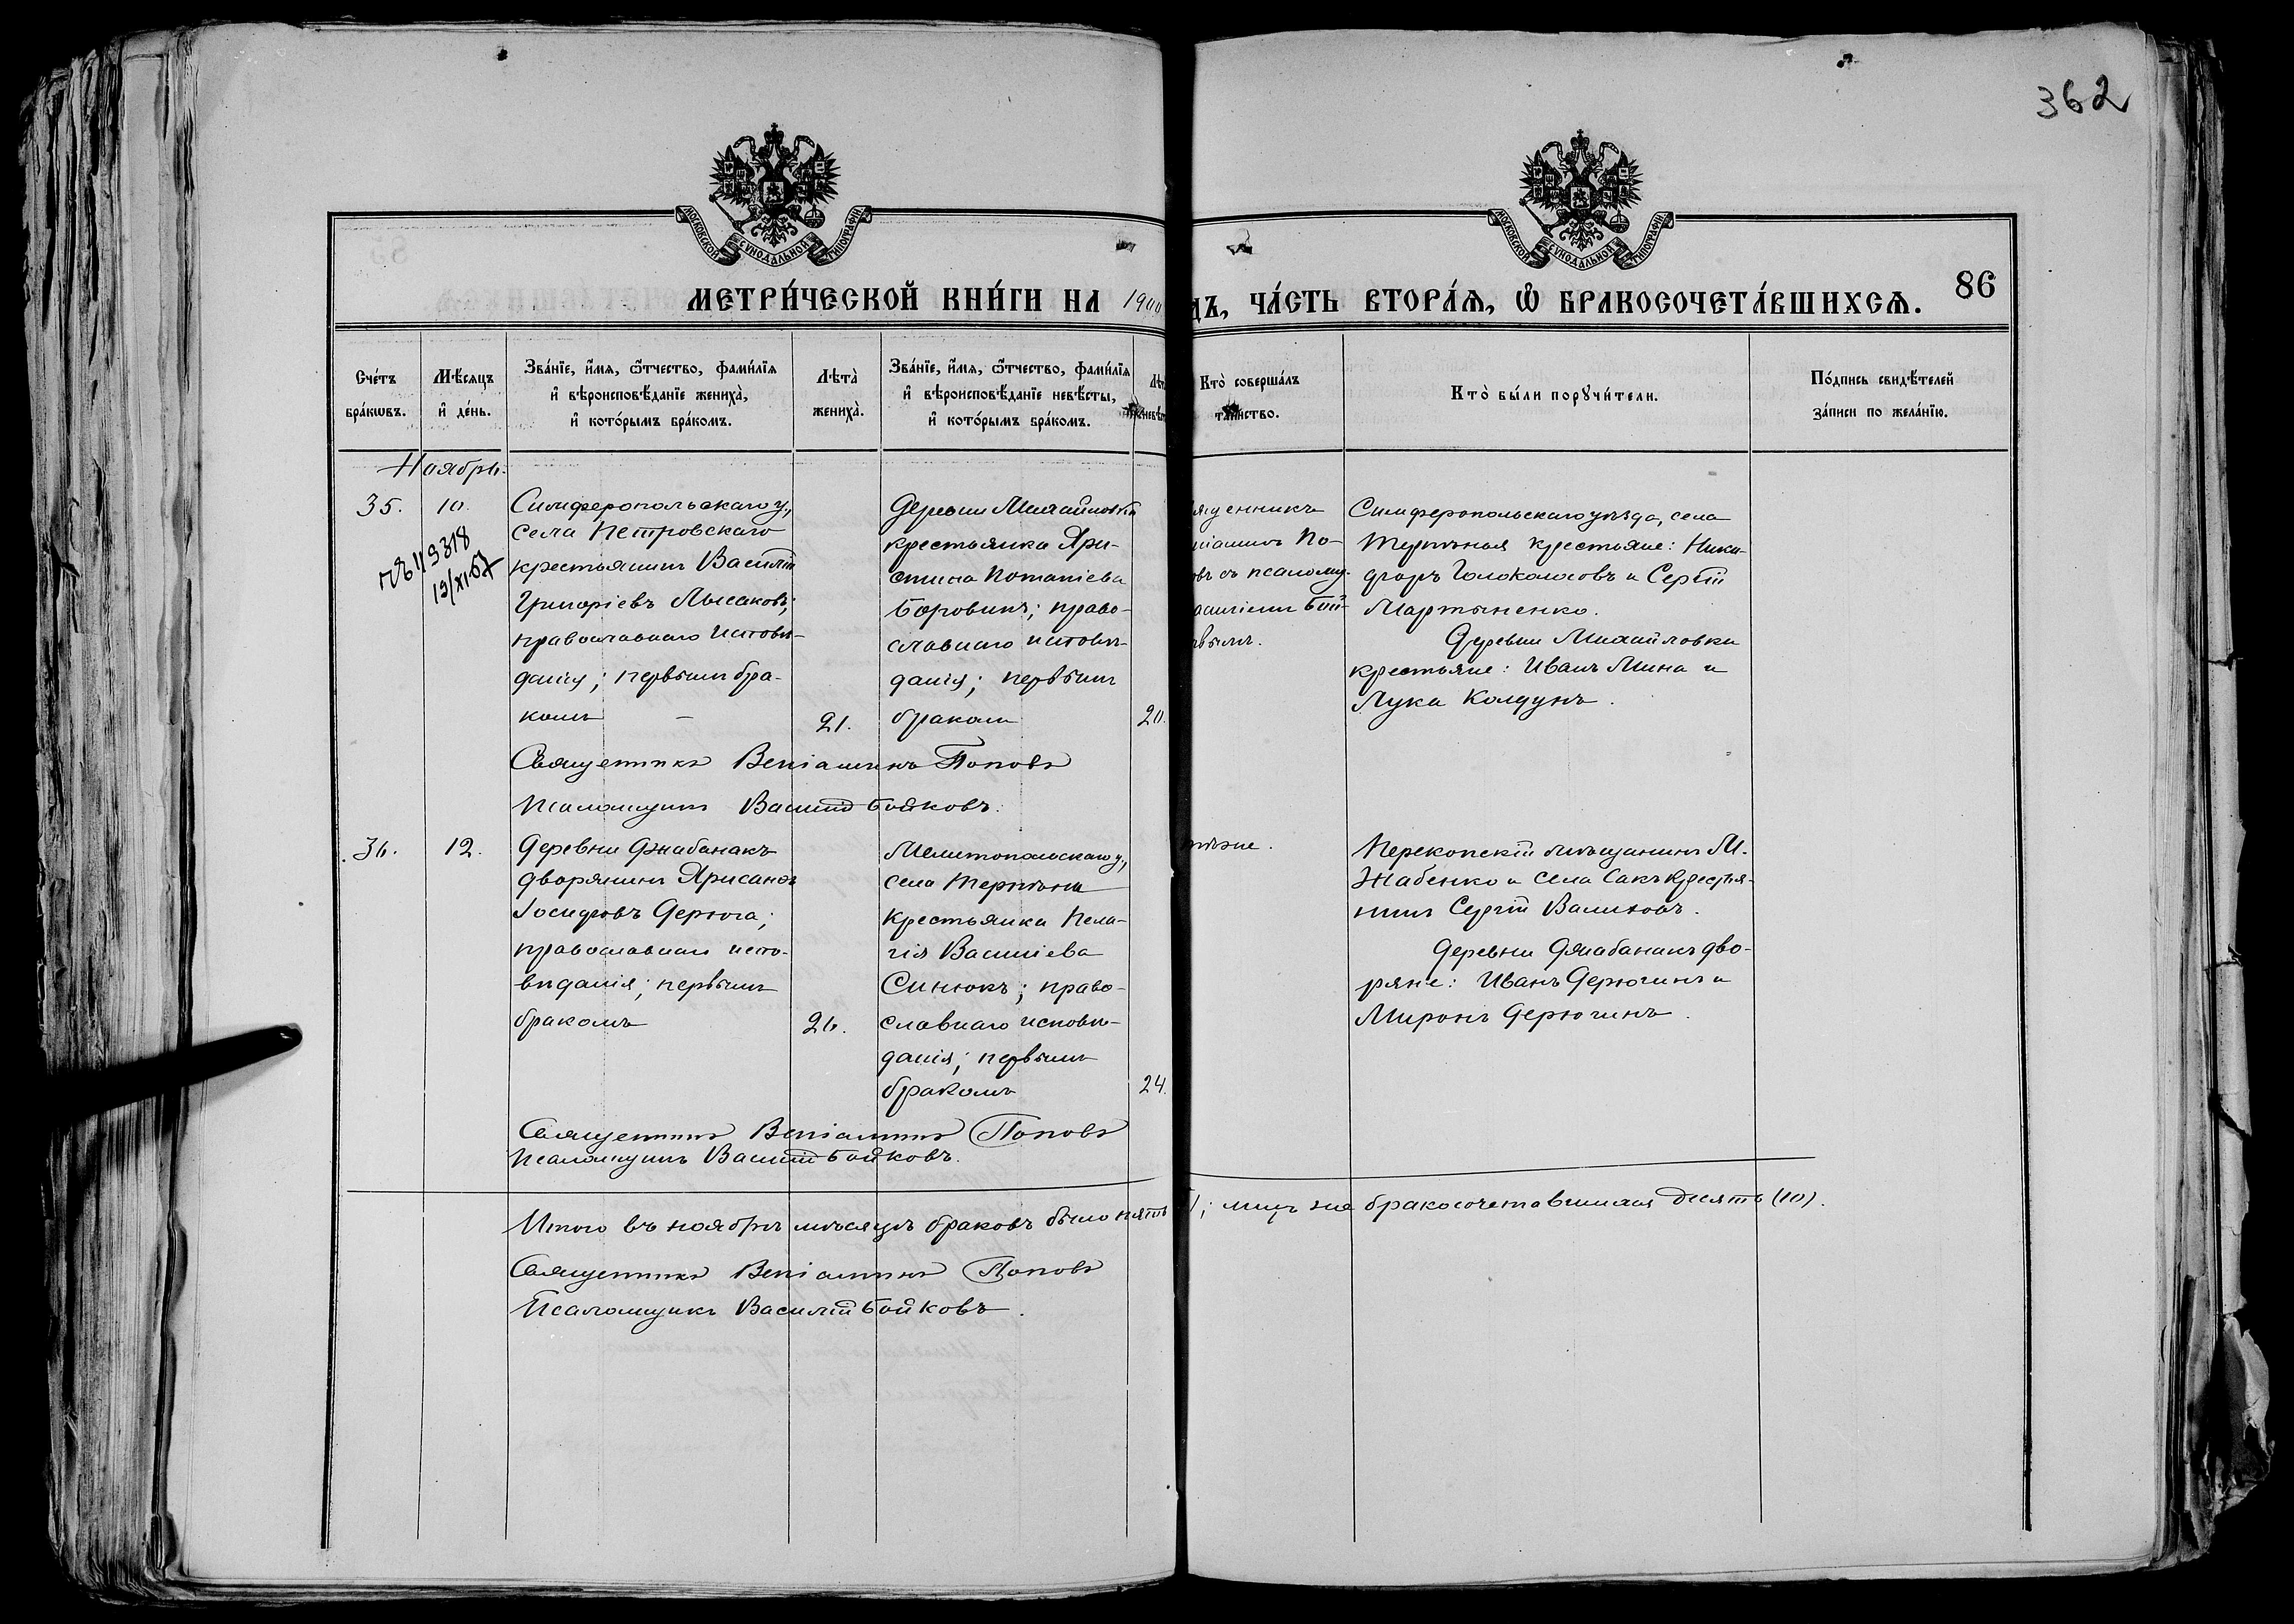 362
МОСКОВСКОЙ СѴНОДАЛЬНОЙ ТИПОГРАФІИ
МОСКОВСКОЙ СѴНОДАЛЬНОЙ ТИПОГРАФІИ
86
МЕТРИ́ЧЕСКОЙ КНИ́ГИ НА 1900
ДЪ, ЧА́СТЬ ВТОРА́Ѧ, Ѡ БРАКОСОЧЕТА́ВШИХСѦ.
Сче́тъ
бра́кѡвъ.
Мѣ́сяцъ
и҆ де́нь.
Зва́нїе, и҆́мя, ѻ҆́тчество, фами́лїя
и҆ вѣроисповѣ́данїе жениха̀,
и҆ кото́рымъ бра́комъ.
Лѣта̀
жениха̀.
Зва́нїе, и҆́мя, ѻ҆́тчество, фами́лїя
и҆ вѣроисповѣ́данїе невѣ́сты,
и҆ кото́рымъ бра́комъ.
Кто̀ соверша́лъ
таинство.
Кто̀ бы́ли порꙋчи́тели.
По́дпись свидѣ́телей
за́писи по жела́нїю.
Ноябрь.
35.
10.
№ 119318
19/XI-57
Симферопольскаго у.,
села Петровскаго
крестьянинъ Василій
Григоріевъ Лысаковъ;
православнаго исповѣ-
данія; первымъ бра-
комъ
21.
Деревни Михайловки
крестьянка Хри-
стина Потапіева
Боровикъ; право-
славнаго исповѣ-
данія; первымъ
бракомъ
20.
ященникъ
ніаминъ По-
овъ съ псаломщ.
асиліемъ Бой-
вымъ.
Симферопольскаго уѣзда, села
крестьяне: Ники-
форъ Голоколосовъ и Сергій
Мартыненко.
Деревни Михайловки
крестьяне: Иванъ Мина и
Лука Колдунъ.
Священникъ Веніаминъ Поповъ
Псаломщикъ Василій Бойковъ.
36.
12.
Деревни Джабанакъ
дворянинъ Хрисанѳъ
Іосифовъ Дерюга;
православнаго испо-
вѣданія; первымъ
бракомъ
26.
Мелитопольскаго у.,
села Терпѣнія
крестьянка Пела-
гія Василіева
Синюкъ; право-
славнаго исповѣ-
данія; первымъ
бракомъ
24.
Перекопскій мѣщанинъ М.
Жабенко и села Сакъ крестья-
нинъ Сергій
Деревни Джабанакъ дво-
ряне: Иванъ Дерючинъ и
Миронъ Дерючинъ.
Священникъ Веніаминъ Поповъ
Псаломщикъ Василій Бойковъ.
Итого въ ноябрѣ мѣсяцѣ браковъ было пять
; лицъ же бракосочетавшихся десять (10).
Священникъ Веніаминъ Поповъ
Псаломщикъ Василій Бойковъ.